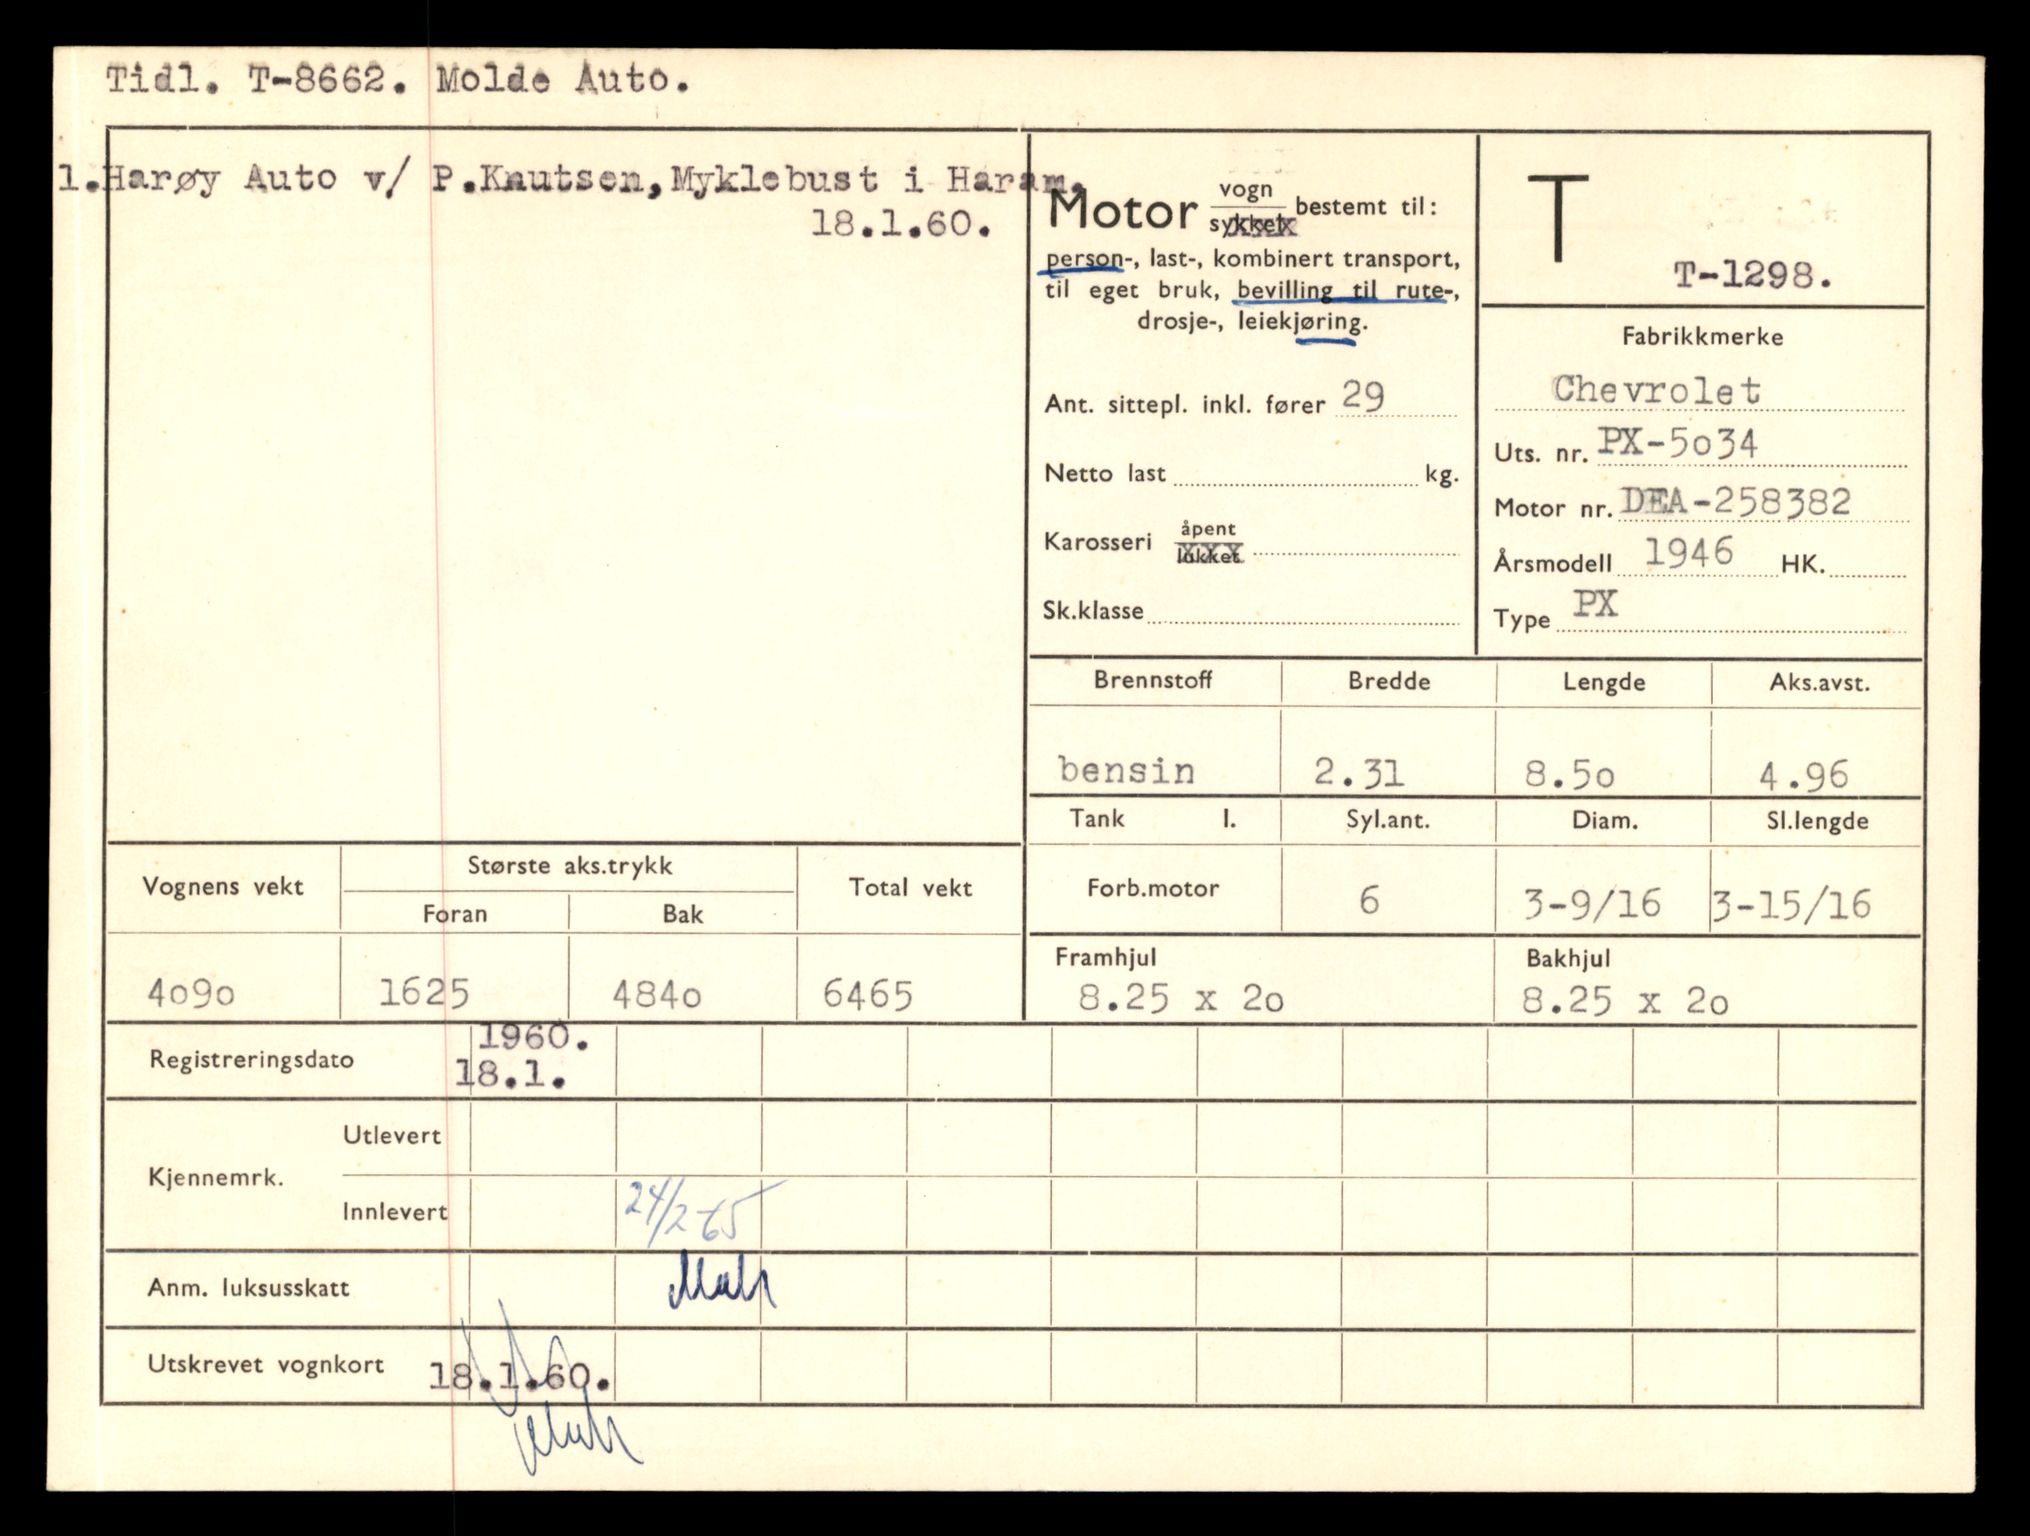 Tidl. T-8662. Molde Auto.
1.Harøy Auto v/ P.Knutsen,Myklebust i Haram.
18.1.60.
Motor vogn sykkel bestemt til:
person-, last-, kombinert transport,
til eget bruk, bevilling til rute-,
drosje-, leiekjøring.
Ant. sittepl. inkl. fører 29
Netto last kg.
Karosseri åpent lukket
Sk.klasse
T
T-1298.
Fabrikkmerke
Chevrolet
Uts. nr. PX-5o34
Motor nr. DEA-258382
Årsmodell 1946 HK.
Type PX
Brennstoff Bredde Lengde Aks.avst.
bensin 2.31 8.5o 4.96
Tank l. Syl.ant. Diam. Sl.lengde
Forb.motor 6 3-9/16 3-15/16
Framhjul Bakhjul
8.25 x 2o 8.25 x 2o
Vognens vekt Største aks.trykk Total vekt
Foran Bak
4o9o 1625 484o 6465
1960.
Registreringsdato 18.1.
Utlevert
Kjennemrk.
Innlevert 24/2-65
Anm. luksusskatt
Utskrevet vognkort 18.1.60.